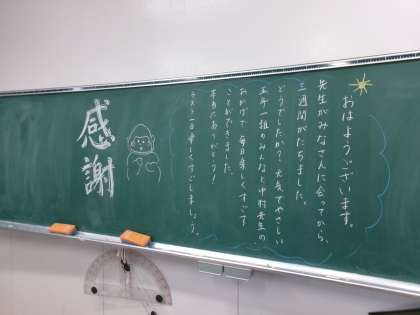 おはようございます。
先生がみなさんに会ってから、
三週間がたちました。
どうでしたか？元気でやさしい
五年一組のみんなと中村先生の
おかげで、毎日楽しくすごす
ことができました。
本当にありがとう！
ラスト一日楽しくすごしましょう。
感謝